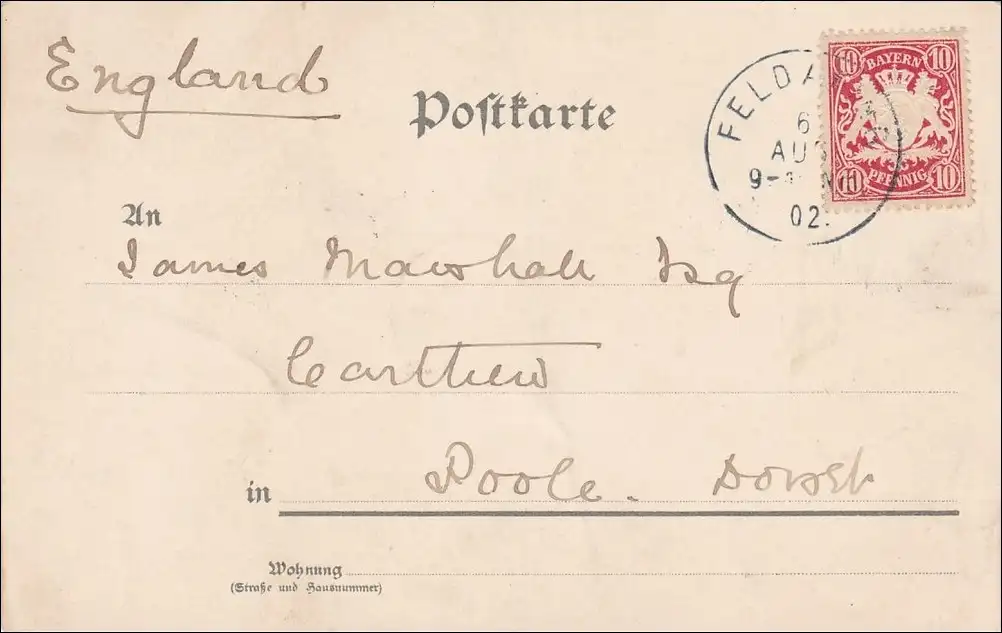 England
Postkarte
10 BAYERN 10
10 PFENNIG 10
6
AUG
9-
02.
An
James Marshall Esq
Carthew
in Poole. Dorset
Wohnung
(Straße und Hausnummer)